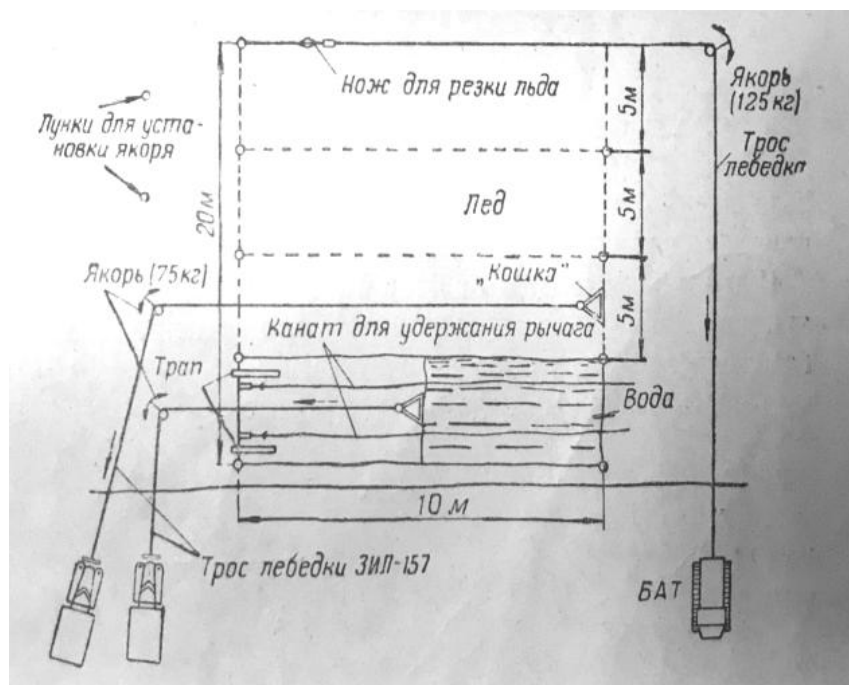 Нож для резки льда
Якорь
(125 кг)
Лунки для уста-
новки якоря
5 м
Трос
лебедка
20 м
Лед
5 м
Якорь (75 кг)
„Кошка"
5 м
Канат для удержания рычага
Трап
Вода
10 м
Трос лебедки ЗИЛ-157
БАТ